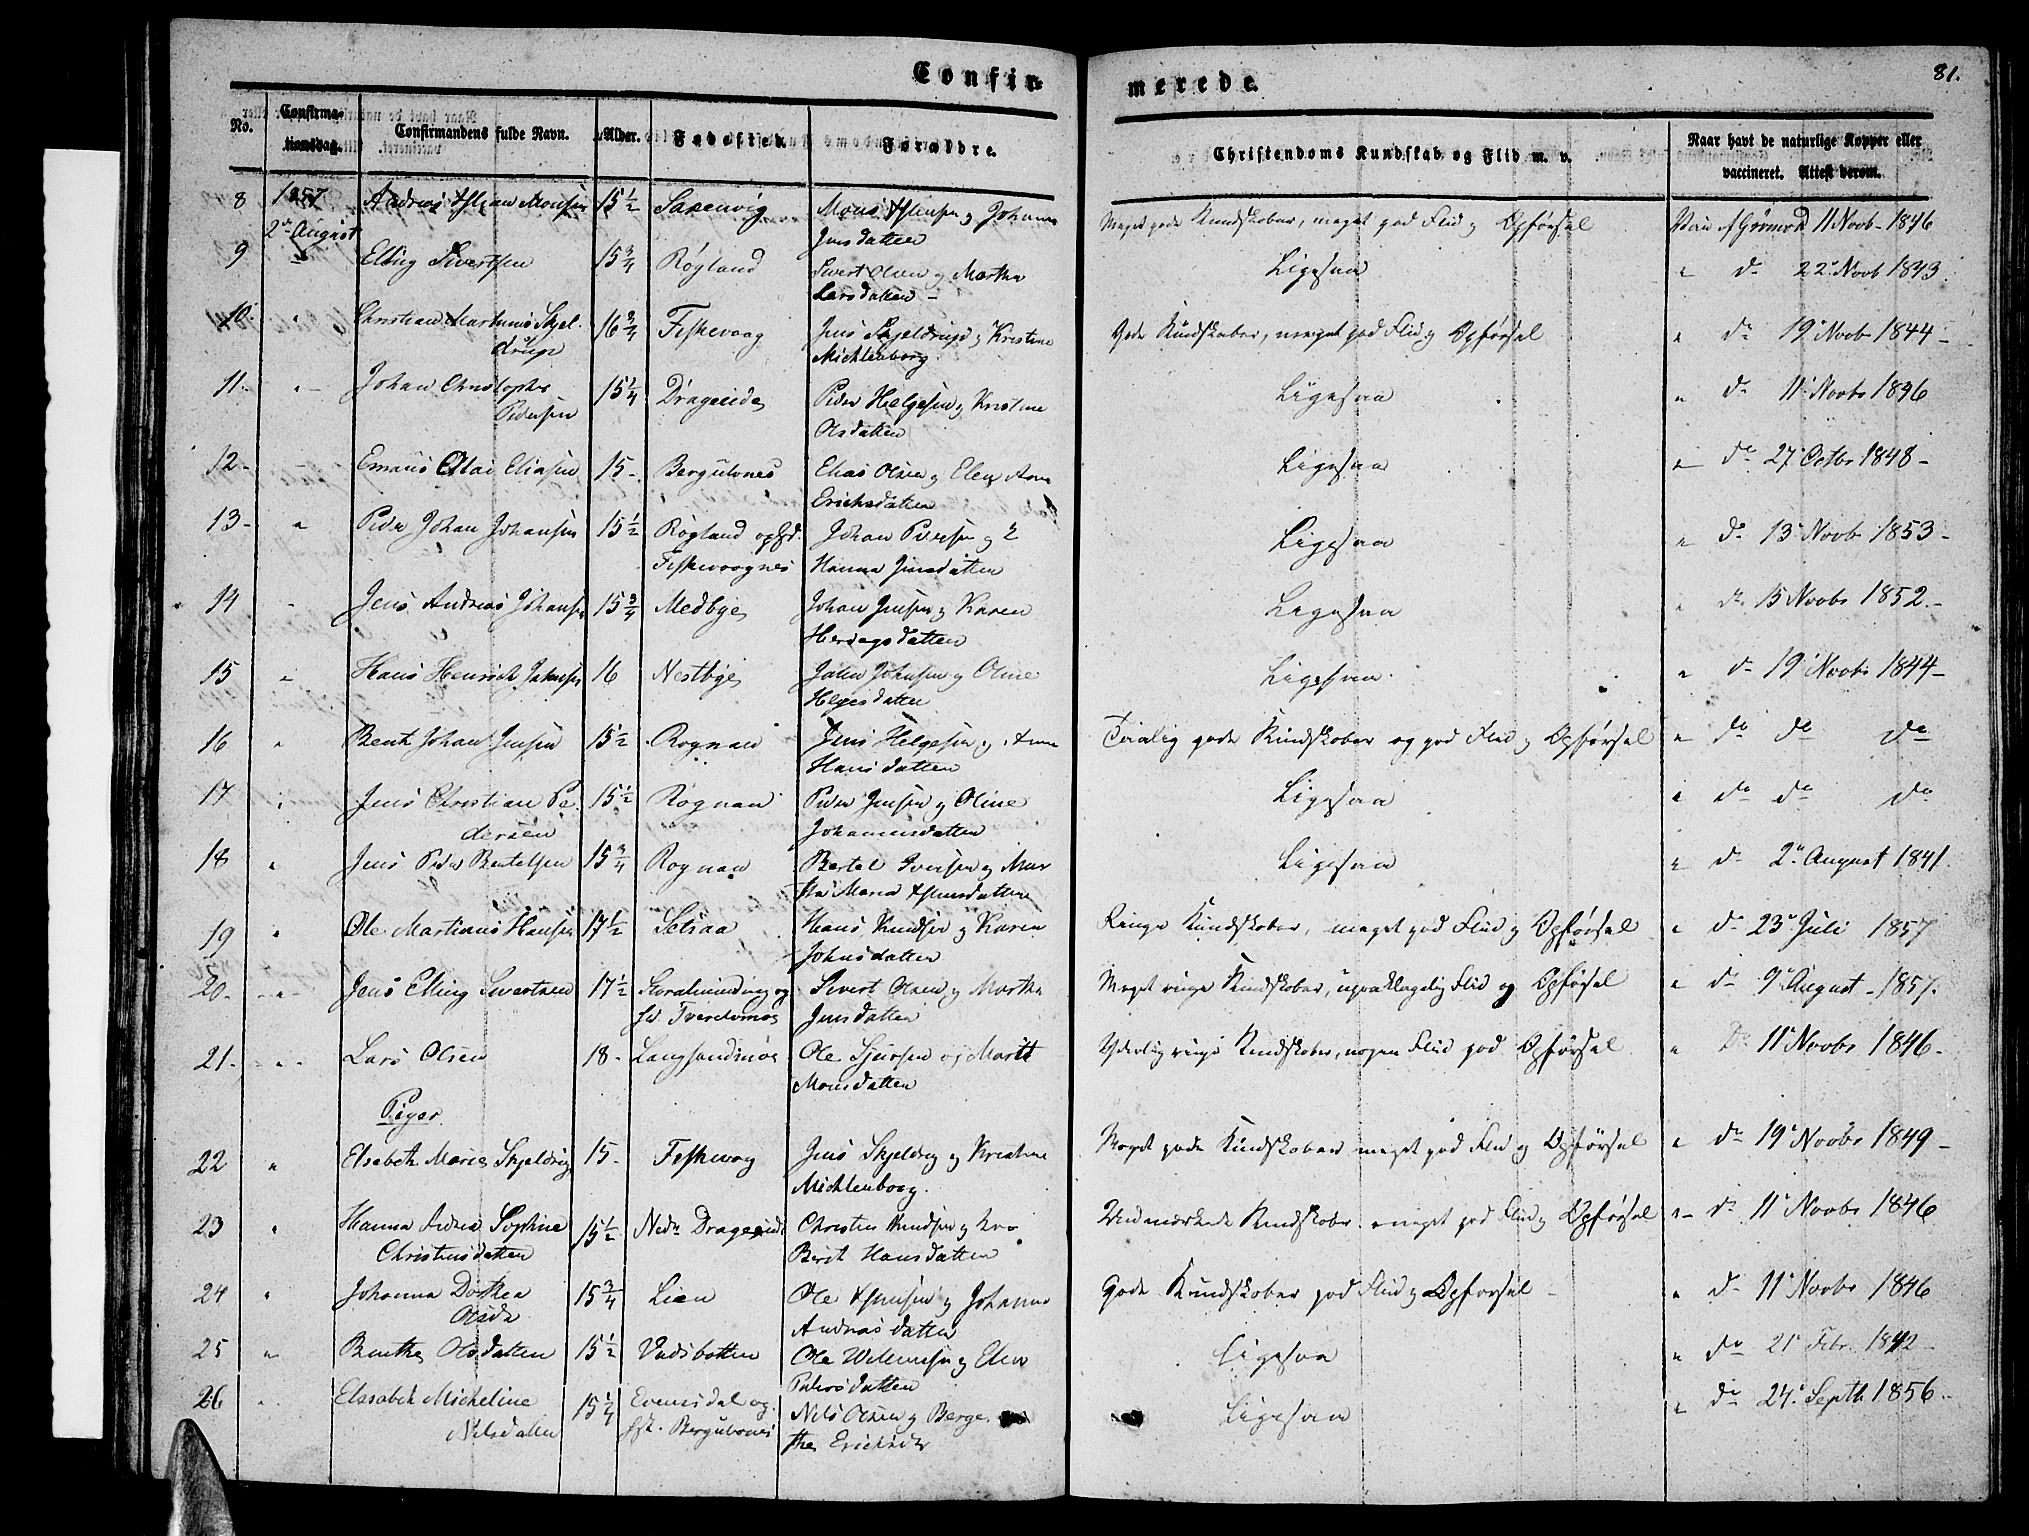 Confir-
merede.
81.
No.
Confirma-
tionsdag.
Confirmandens fulde Navn.
Alder.
Fødested.
Forældre.
Christendoms Kundskab og Flid m. v.
Naar havt de naturlige Kopper eller
vaccineret. Attest derom.
8 1857 Andreas Monsen 15 1/2 Saxenvig Mons og Johanna Meget gode Kundskaber, meget god Flid og Opførsel 11 Novb 1846
2den August Jensdatter
9 Elling Sivertsen 15 3/4 Røgland Sivert Olsen og Martha Ligesaa " do 22 Novb 1843
Larsdatter
10. " Christian Martinus Skjel- 16 3/4 Fiskevaag Jens Skjeldrup og Kristine Gode Kundskaber, meget god Flid og Opførsel " do 19 Novb 1844
drup Michlenborg
11. " Johan Christopher 15 1/4 Drageide Peder Helgesen og Kristine Ligesaa " do 11 Novbr 1846
Pedersen Olsdatter
12. Olai Eliasen 15 Bergulvnes Elias Olsen og Elen Anna Ligesaa " do 27 Octbr 1848
Erichsdatter
13 " Peder Johan Johansen 15 1/2 Røgland Johan Pedersen og Ligesaa " do 13 Novb 1853
Fiskevaagnes Hanna Jensdatter
14 " Jens Andreas Johansen 15 3/4 Medbye Johan Jensen og Karen Ligesaa " do 15 Novbr 1852
datter
15 " Hans Henrich Johnsen 16 Nestbye Johnsen og Oline Ligesaa " do 19 Novbr 1844
Helgesdatter
16 " Bent Johan Jensen 15 1/2 Rognan Jens Helgesen og Anne Temmelig gode Kundskaber og god Flid og Opførsel " do do do
Hansdatter
17 " Jens Christian Pe- 15 1/2 Rognan Peder Jensen og Oline Ligesaa " do do do
dersen Johannesdatter
18 " Jens Peder Bertelsen 15 3/4 Rognan Bertel Iversen og Mar- Ligesaa " do 2 August 1841.
tha Maria
19 " Ole Martinus Hansen 17 1/2 Setsaa Hans Knudsen og Karen Ringe Kundskaber, meget god Flid og Opførsel " do 23 Juli 1857
Johnsdatter
20. " Jens Elling Sivertsen 17 1/2 og Sivert Olsen og Martha Meget ringe Kundskaber, upaaklagelig Flid og Opførsel " do 9 August 1857.
Jensdatter
21. " Lars Olsen 18 Langsandmoe Ole Sjursen og Marit Yderlig ringe Kundskaber, nogen Flid god Opførsel " Do 11 Novbr 1846
Monsdatter
Piger
22 " Elsabeth Marie Skjeldrup 15 Fiskevog Jens Skjeldrup og Kristine Meget gode Kundskaber meget god Flid og Opførsel " do 19 Novbr 1849
Michlenborg.
23 " Hanna Sophine 15 1/2 Nedr Drageide Christen Knudsen og Udmærkede Kundskaber meget god Flid og Opførsel " do 11 Novbr 1846
Christensdatter Berit Hansdatter
24 " Johanna Dorthea 15 3/4 Lien Ole og Johanna Gode Kundskaber god Flid og Opførsel " do 11 Novbr 1846
Olsdr Andreasdatter
25 " Benthe Olsdatter 15 1/2 Vadsbotten Ole Willumsen og Elen Ligesaa " do 21 Febr. 1842
Pedersdatter
26 " Elsabeth Micheline 15 1/4 Evensdal og Nils Olsen og Berge- Ligesaa " do 24 Septb 1856
Nilsdatter Bergulvnes the Ericksdr